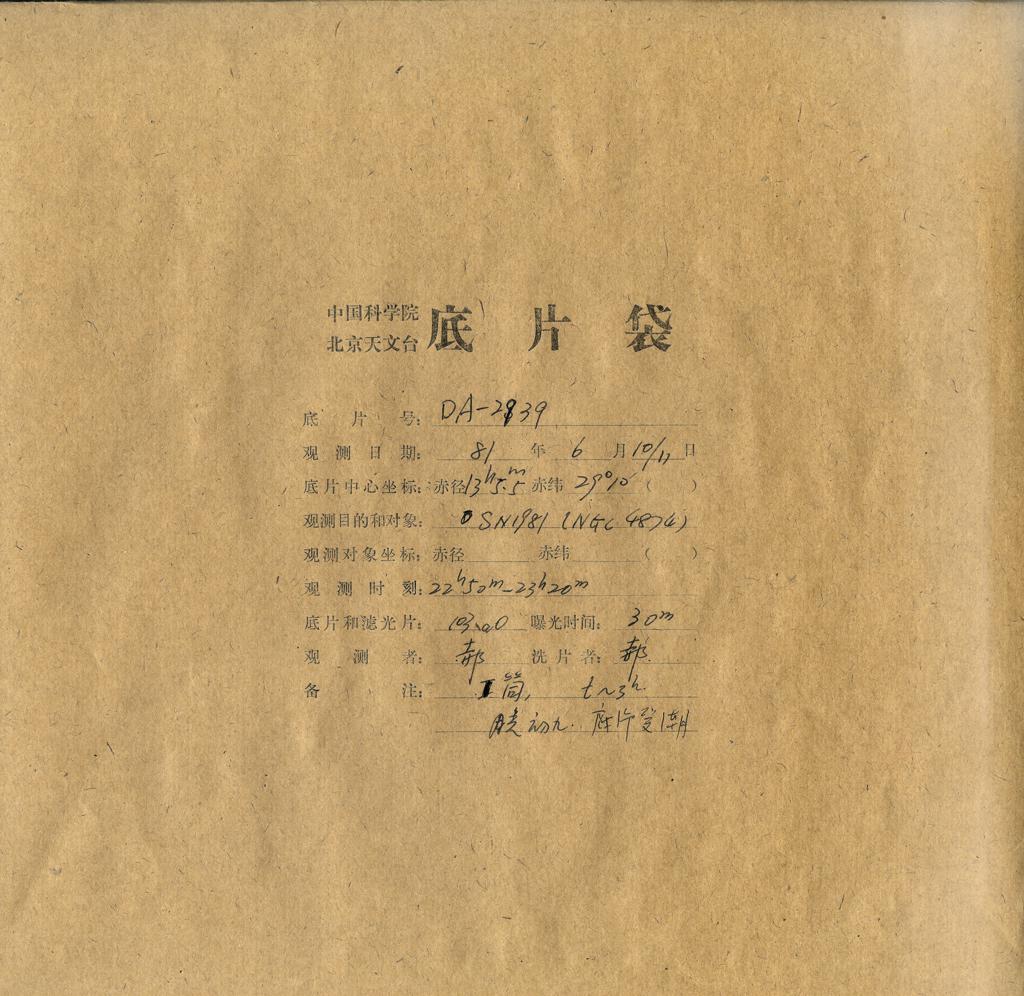 中国科学院
北京天文台 底片袋
底片号: DA-2939
观测日期: 81年6月10/11日
底片中心坐标: 赤径13ʰ5.5ᵐ 赤纬29°10′ ( )
观测目的和对象: SN1981 (NGC 4874)
观测对象坐标: 赤径 赤纬 ( )
观测时刻: 22ʰ50ᵐ-23ʰ20ᵐ
底片和滤光片: 103aO 曝光时间: 30ᵐ
观测者: 郝 洗片者: 郝
备注: I筒, t~3ʰ
初九. 底片受潮